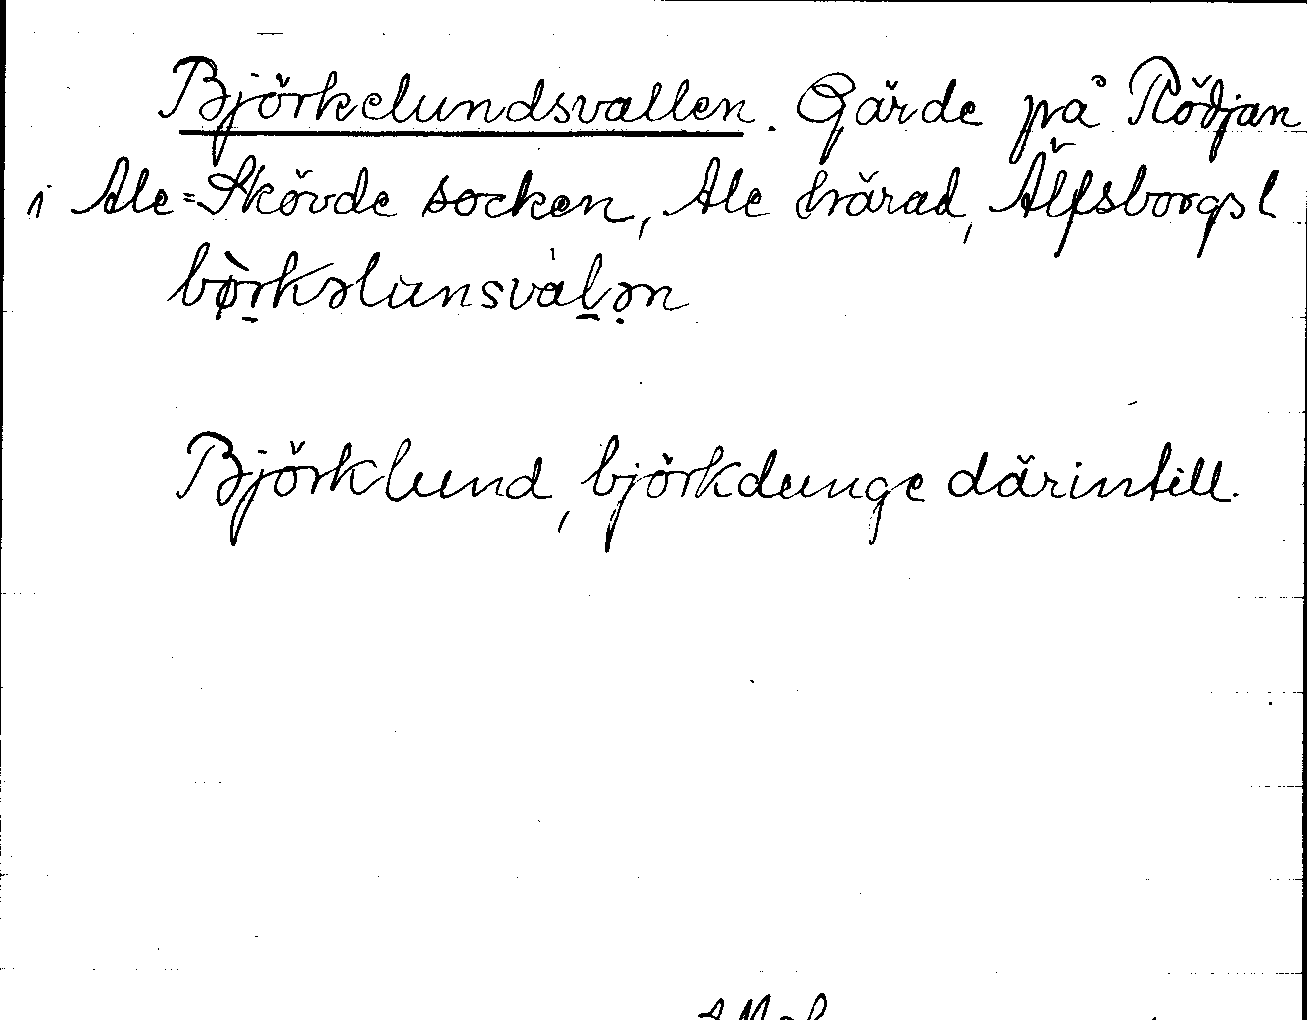 Björkelundsvallen. Gärde på Rödjan
i Ale=Skövde socken, Ale härad, Älfsborgs l
bø̀rkəlunsvalən
Björklund, björkdunge därintill.